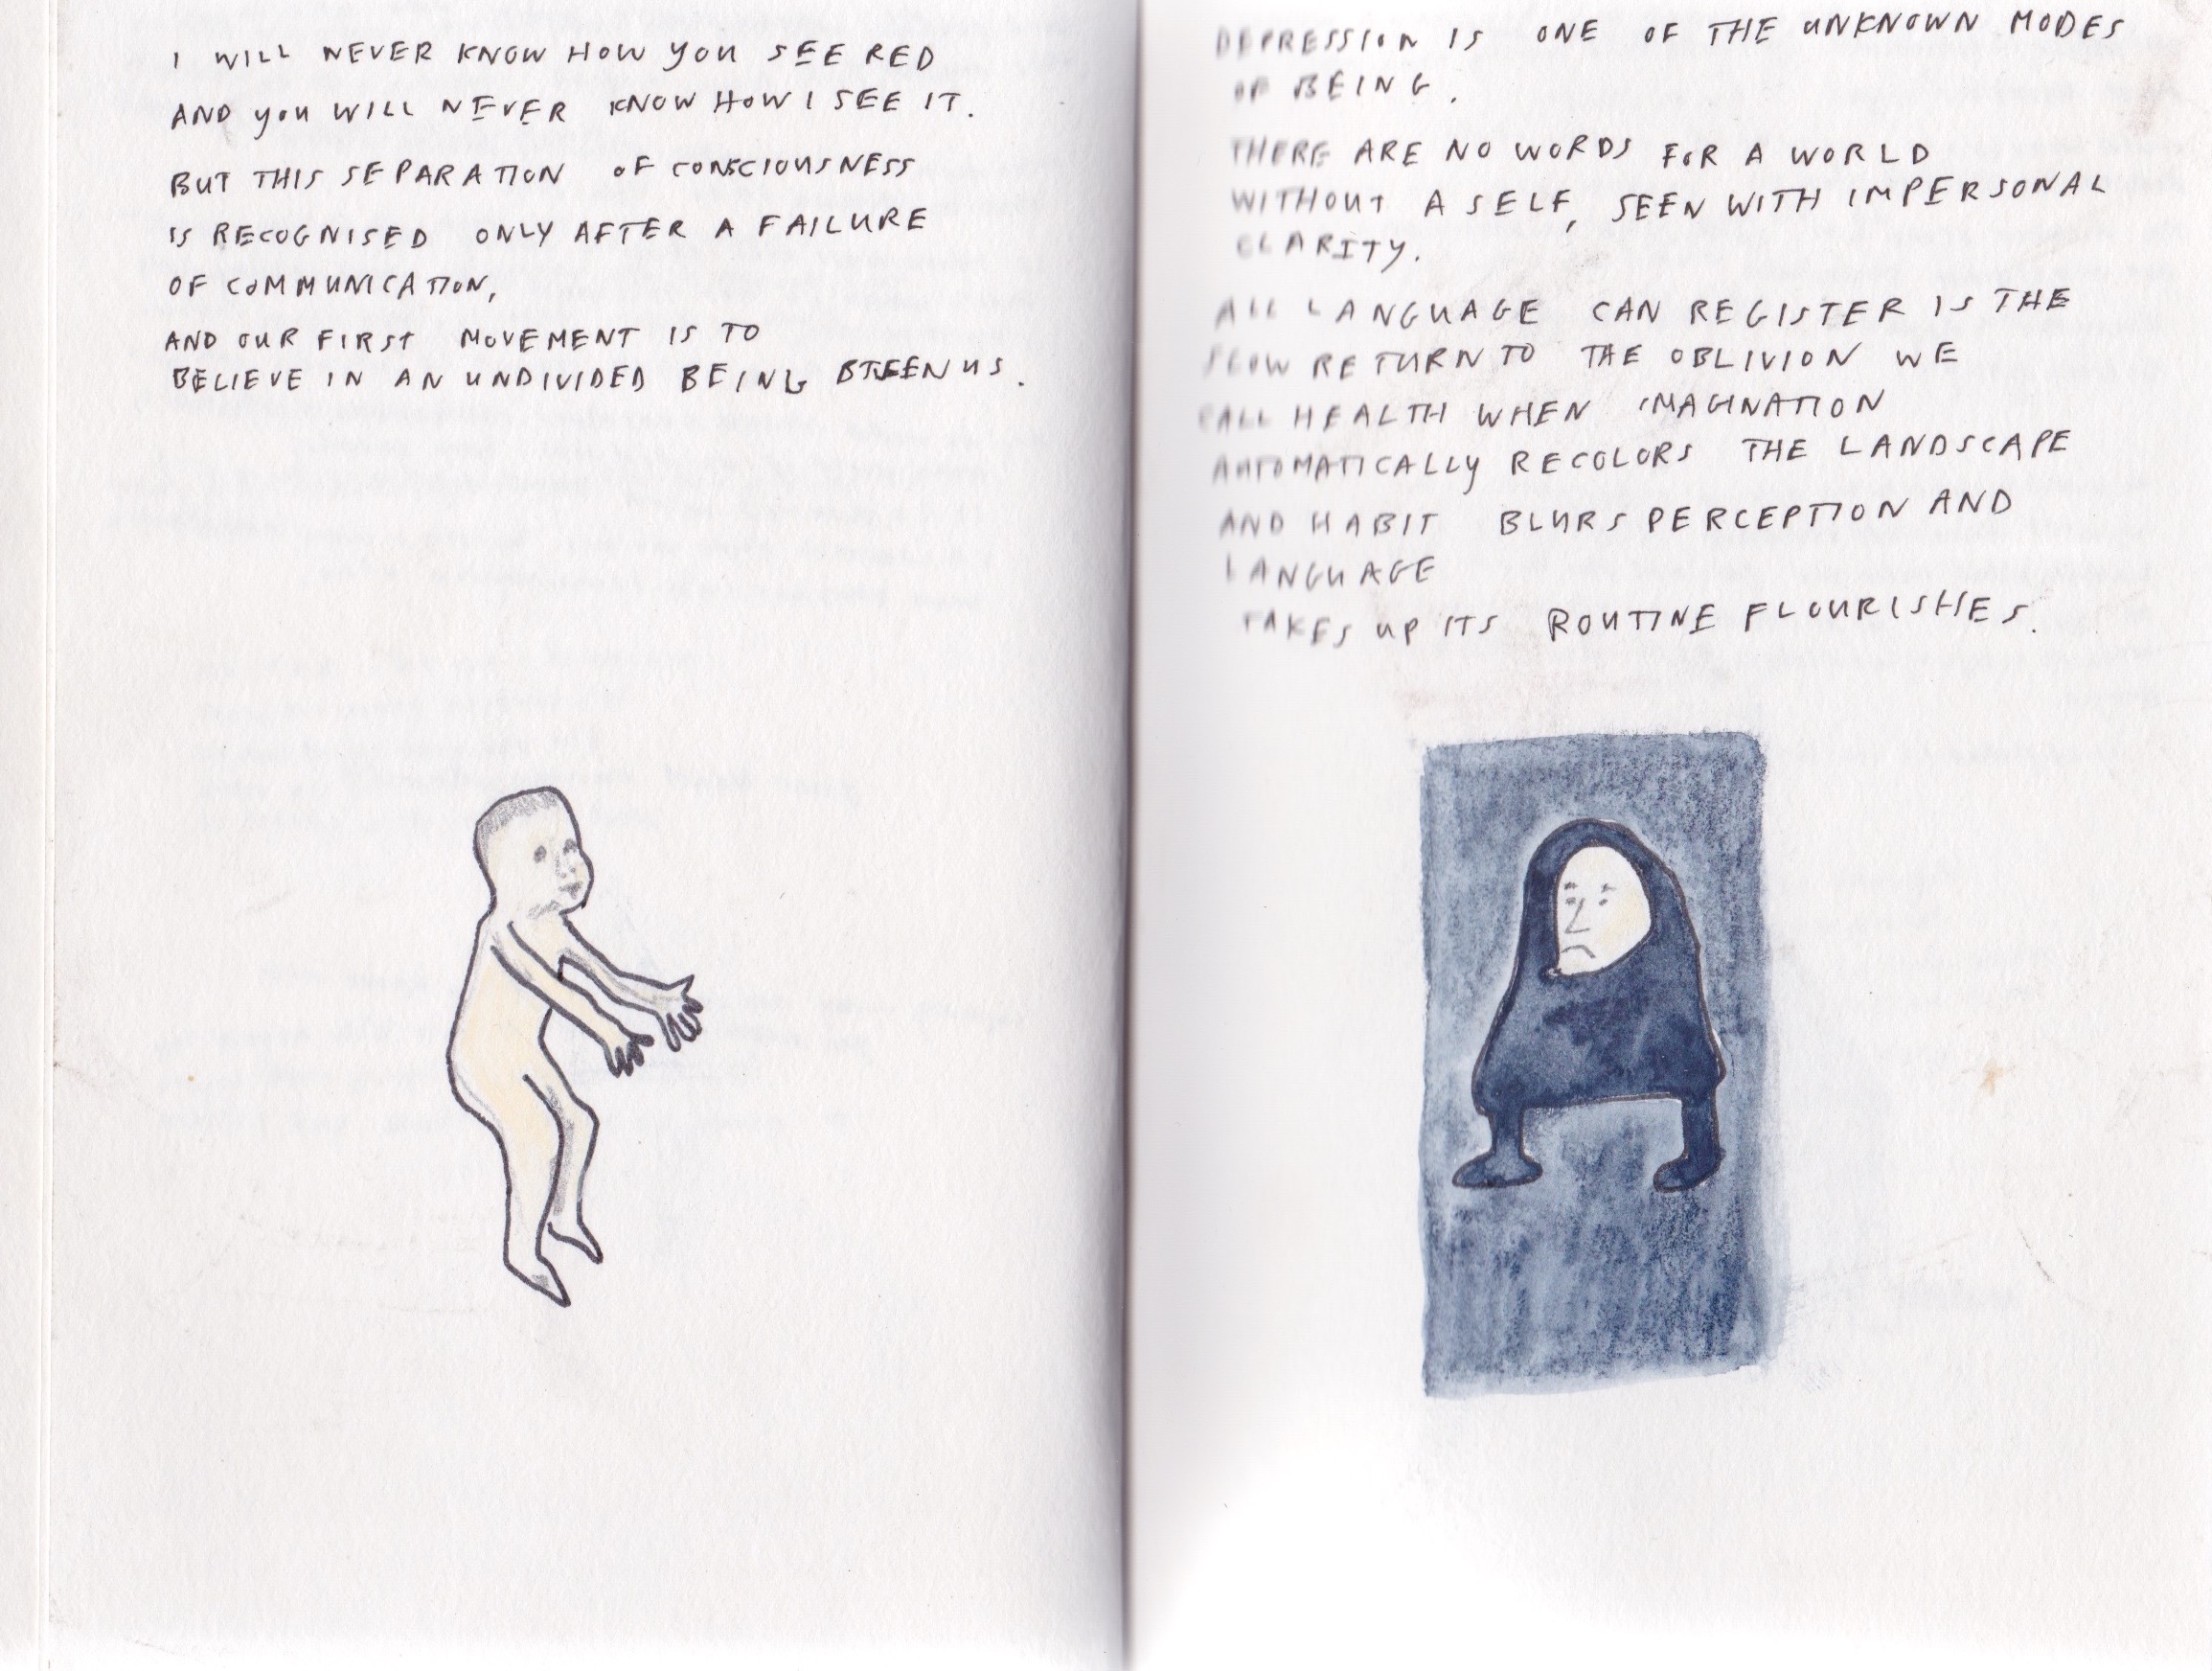 I WILL NEVER KNOW HOW YOU SEE RED
AND YOU WILL NEVER KNOW HOW I SEE IT.
BUT THIS SEPARATION OF CONSCIOUSNESS
IS RECOGNISED ONLY AFTER A FAILURE
OF COMMUNICATION,
AND OUR FIRST MOVEMENT IS TO
BELIEVE IN AN UNDIVIDED BEING BTEEN US.
DEPRESSION IS ONE OF THE UNKNOWN MODES
OF BEING.
THERE ARE NO WORDS FOR A WORLD
WITHOUT A SELF, SEEN WITH IMPERSONAL
CLARITY.
ALL LANGUAGE CAN REGISTER IS THE
SLOW RETURN TO THE OBLIVION WE
CALL HEALTH WHEN IMAGINATION
AUTOMATICALLY RECOLORS THE LANDSCAPE
AND HABIT BLURS PERCEPTION AND
LANGUAGE
TAKES UP ITS ROUTINE FLOURISHES.